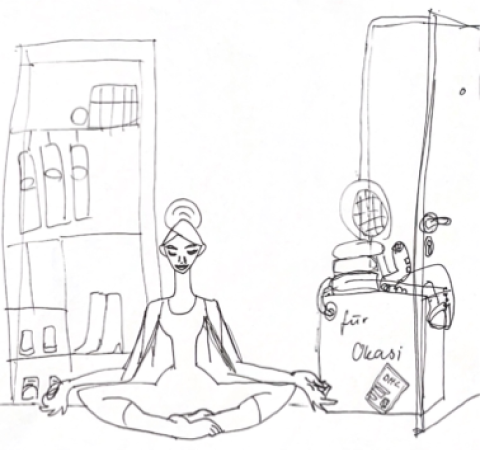 für
Okasi
DHL